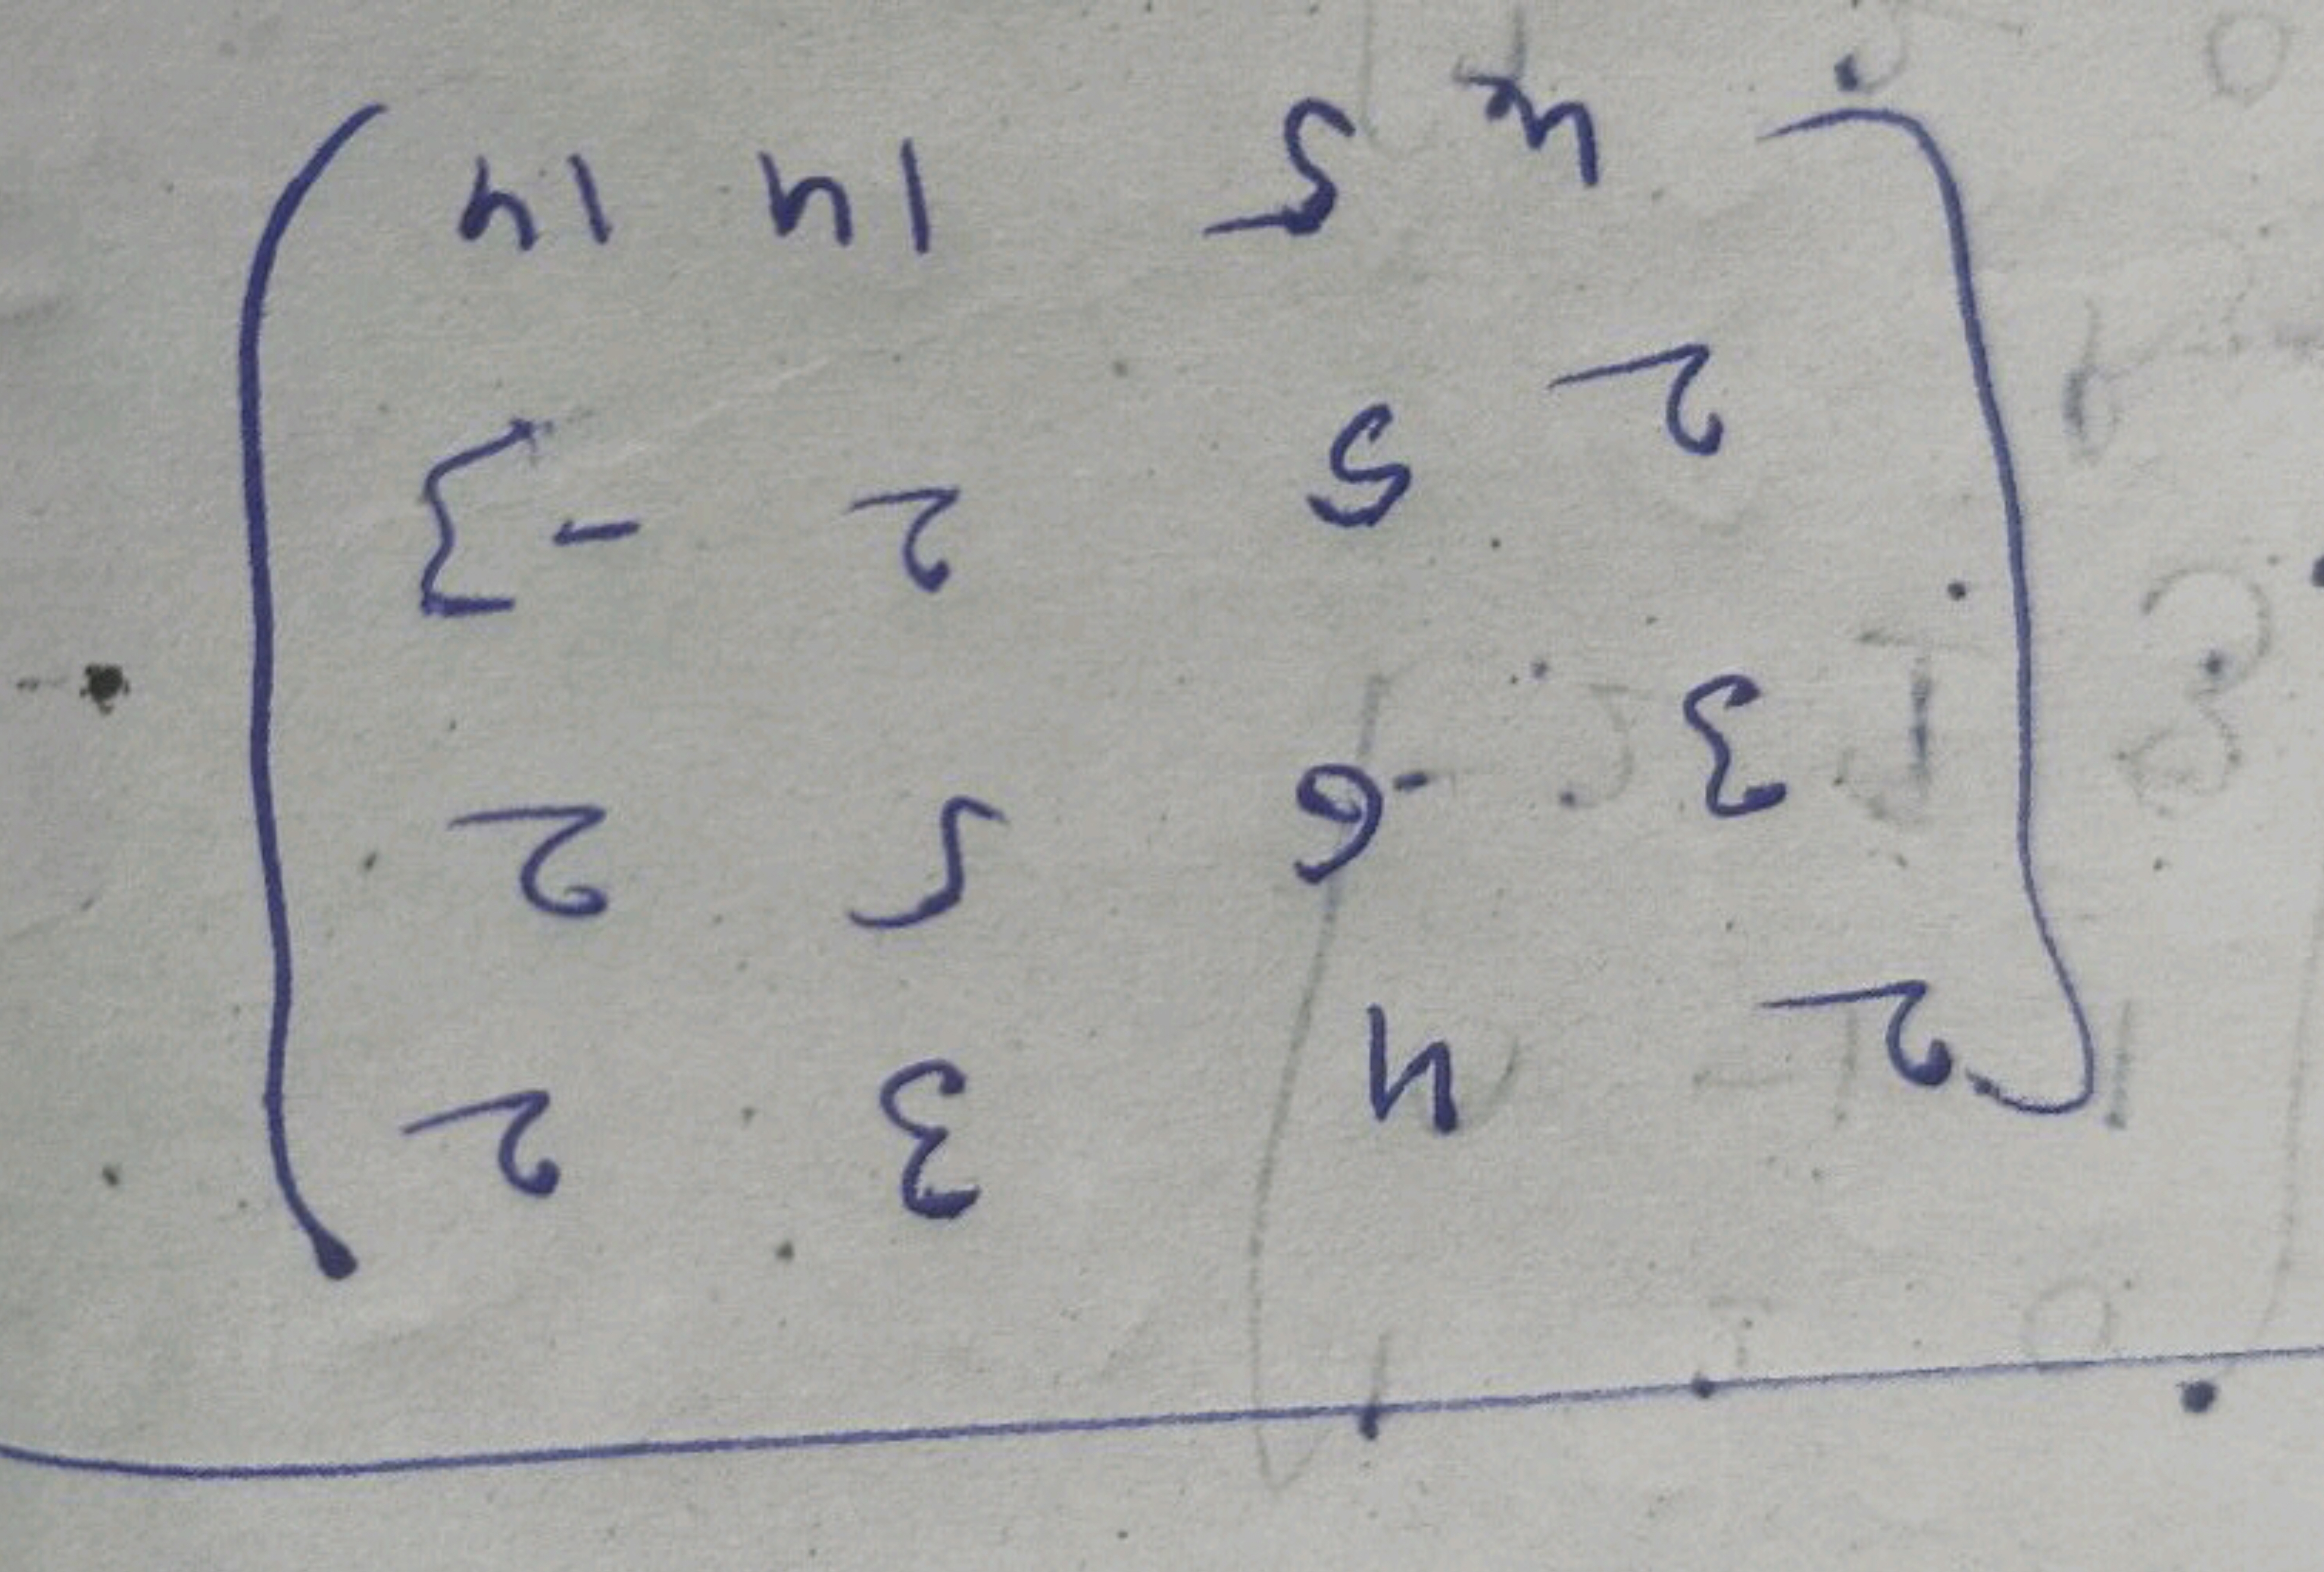 2 4 3 2
3 -6 5 2
2 5 2 -3
4 5 14 14